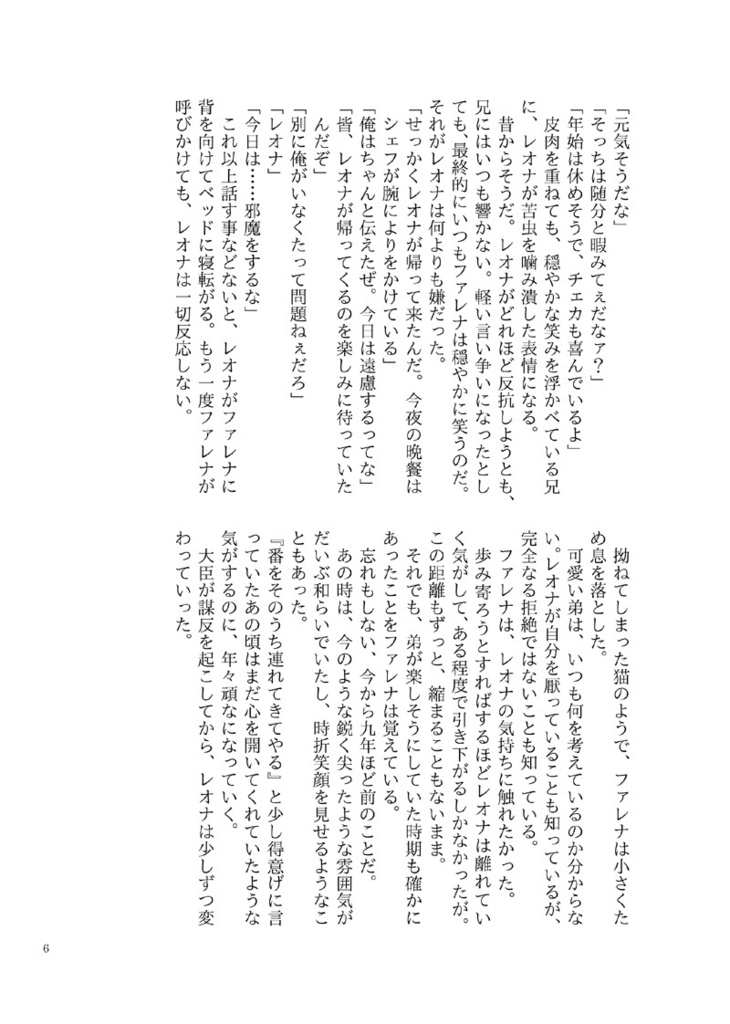 「元気そうだな」
「そっちは随分と暇みてぇだなァ？」
「年始は休めそうで、チェカも喜んでいるよ」
皮肉を重ねても、穏やかな笑みを浮かべている兄
に、レオナが苦虫を噛み潰した表情になる。
昔からそうだ。レオナがどれほど反抗しようとも、
兄にはいつも響かない。軽い言い争いになったとし
ても、最終的にいつもファレナは穏やかに笑うのだ。
それがレオナは何よりも嫌だった。
「せっかくレオナが帰って来たんだ。今夜の晩餐は
シェフが腕によりをかけている」
「俺はちゃんと伝えたぜ。今日は遠慮するってな」
「皆、レオナが帰ってくるのを楽しみに待っていた
んだぞ」
「別に俺がいなくたって問題ねぇだろ」
「レオナ」
「今日は……邪魔をするな」
これ以上話す事などないと、レオナがファレナに
背を向けてベッドに寝転がる。もう一度ファレナが
呼びかけても、レオナは一切反応しない。
拗ねてしまった猫のようで、ファレナは小さくた
め息を落とした。
可愛い弟は、いつも何を考えているのか分からな
い。レオナが自分を厭っていることも知っているが、
完全なる拒絶ではないことも知っている。
ファレナは、レオナの気持ちに触れたかった。
歩み寄ろうとすればするほどレオナは離れてい
く気がして、ある程度で引き下がるしかなかったが。
この距離もずっと、縮まることもないまま。
それでも、弟が楽しそうにしていた時期も確かに
あったことをファレナは覚えている。
忘れもしない、今から九年ほど前のことだ。
あの時は、今のような鋭く尖ったような雰囲気が
だいぶ和らいでいたし、時折笑顔を見せるようなこ
ともあった。
『番をそのうち連れてきてやる』と少し得意げに言
っていたあの頃はまだ心を開いてくれていたような
気がするのに、年々頑なになっていく。
大臣が謀反を起こしてから、レオナは少しずつ変
わっていった。
6